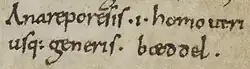 Anareporesis · i · homo utri
usq; generis · bæddel ·